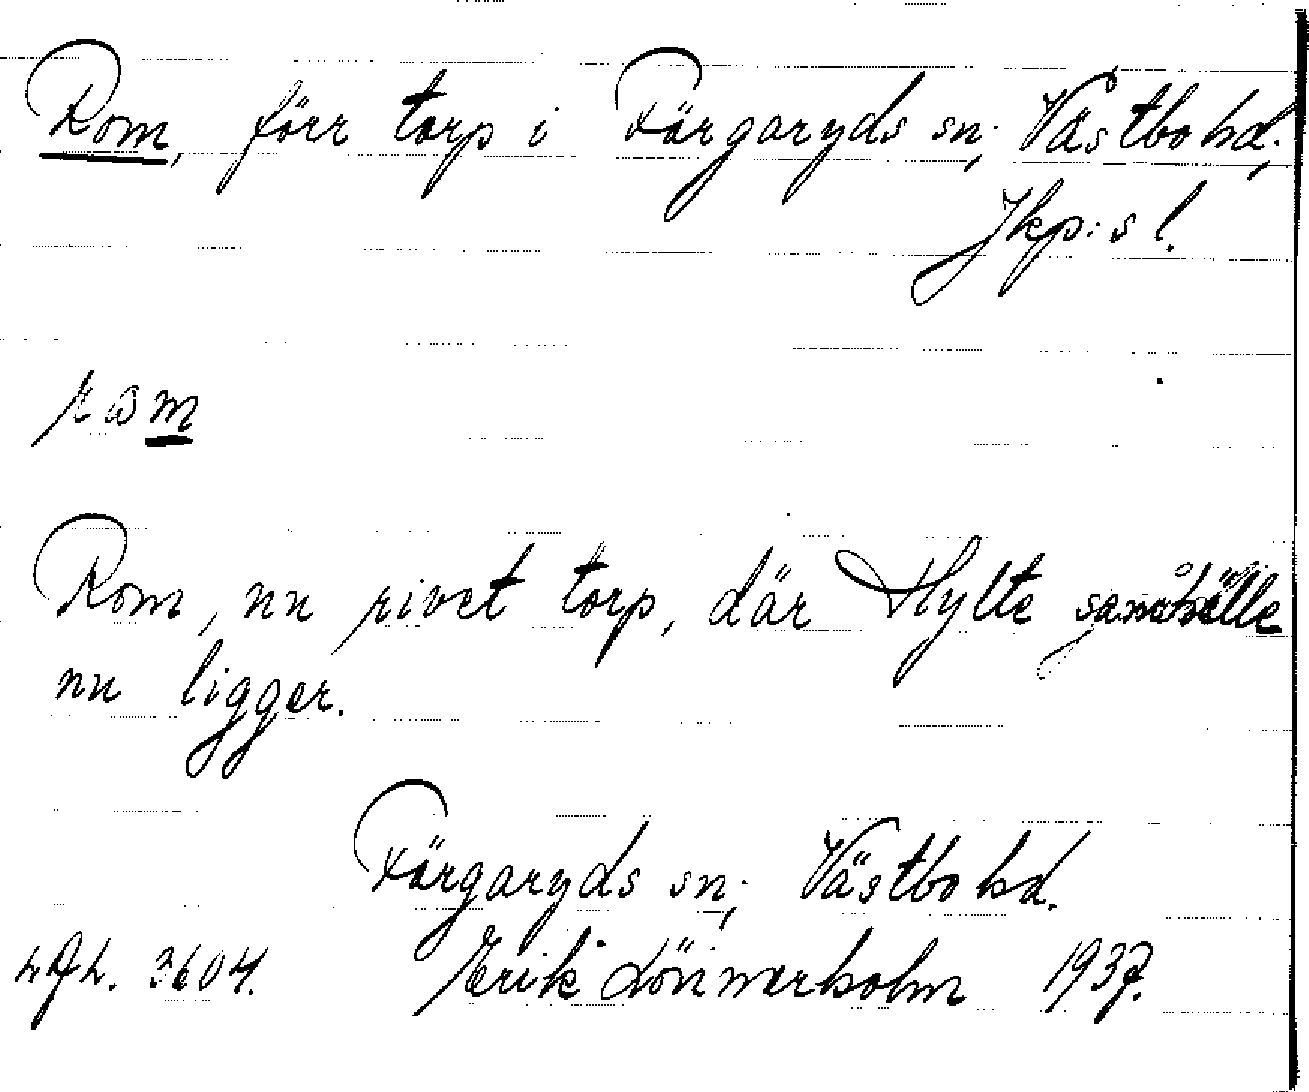 Rom, förr torp i Färgaryds sn., Västbo hd.,
Jkp:s l.
Rom, nu rivet torp, där Hylte samhälle
nu ligger.
Färgaryds sn., Västbo hd.
3604. Erik Lönnerholm 1937.